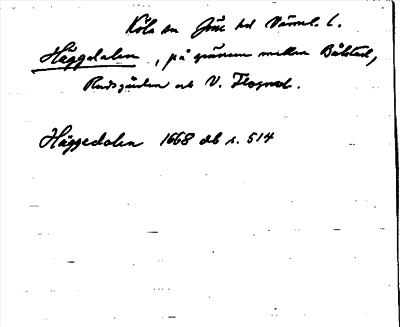 Köla sn Jösse hd Värml. l.
Häggedalen, på gränsen mellan Bålstad,
Rudsgården och V. Flogned.
Häggedalen 1668 db s. 514